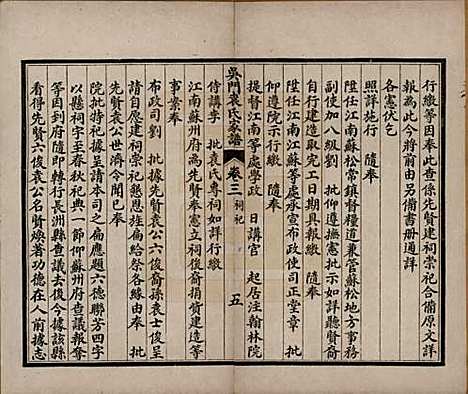 行繳等因奉此查係先賢建祠崇祀合備原文詳
報為此今將前由另備書册通詳
各憲伏乞
照詳施行　隨奉
陞任江南江蘇松常鎮督糧道兼管蘇松地方事務
副使加八級劉　批仰遵撫憲批示如詳勒石以
自行建造取完工日期具報繳　隨奉
陞任江南江蘇等處承宣布政使司正堂章　批
仰遵院示行繳　隨奉
提督江南等處學政　日講官　起居注翰林院
吳門袁氏家譜　卷三　祠祀　五
侍講李　批袁氏專祠如詳行繳
江南蘇州府為先賢奉憲立祠後裔捐資建造等
事案奉
布政司劉　批據先賢袁公六俊裔孫袁士俊呈
請自應建祠崇祀懇恩旌扁給祭各緣由奉　批
先賢袁公世濟令聞已奉
院批特祀據呈請本司之扁應題六德聯芳四字
以懸祠宇至春秋祀典一節仰蘇州府查議報奪
等因到府隨即轉行長洲縣查議去後今據該縣
看得先賢六俊袁公名賢煥著功德在人前據志